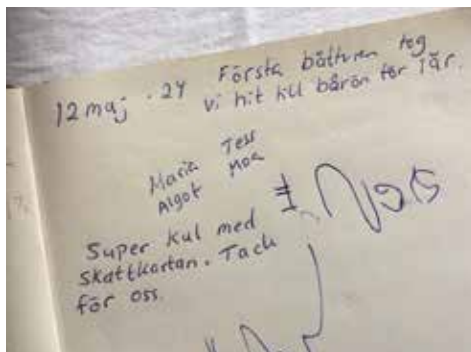 12 maj · 24 Första båtturen tog
vi hit till bårön för i år.
Maria Tess
Algot Moa
Super kul med
Skattkartan. Tack
för oss.